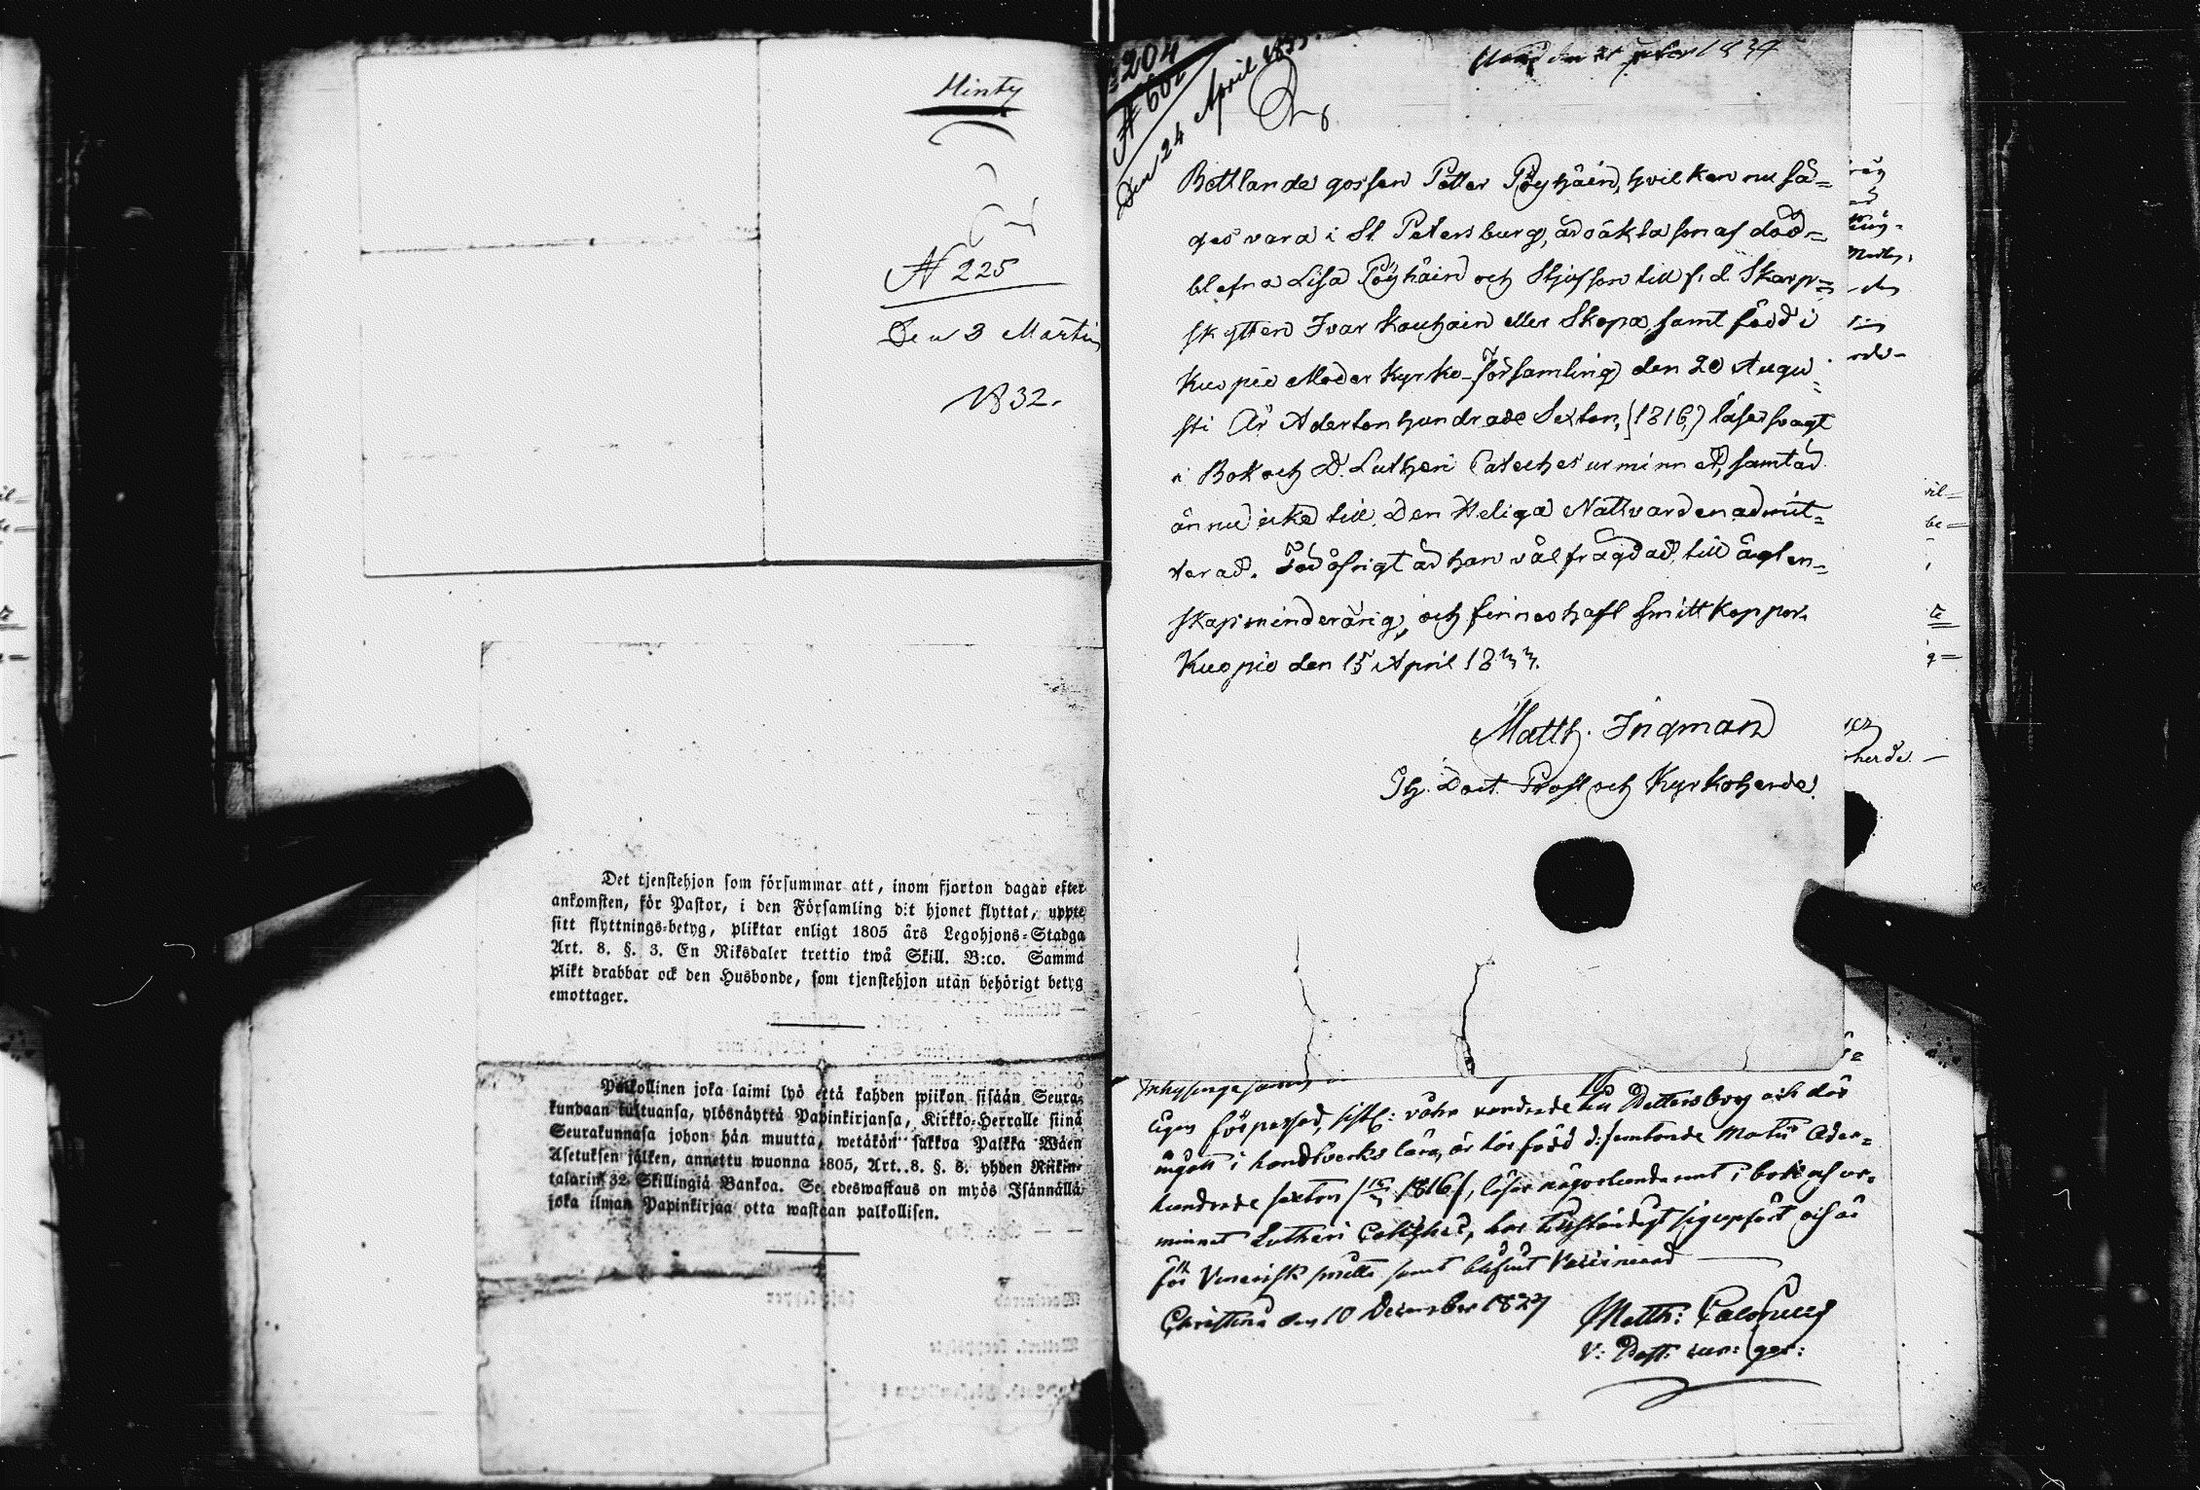 Minty
N 225
Den 3 Martii
1832.
Det tjenstehjon som försummar att, inom fjorton dagar efter
ankomsten, för Pastor, i den Församling dit hjonet flyttat, uppte
sitt flyttnings-betyg, pliktar enligt 1805 års Legohjons-Stadga
Art. 8. §. 3. En Riksdaler trettio twå Skill. B:co. Samma
plikt drabbar ock den Husbonde, som tjenstehjon utan behörigt betyg
emottager.
Palkollinen joka laimi lyö että kahden wiikon sisään Seura-
kundaan tultuansa, ylösnäyttä Papinkirjansa, Kirkko-Herralle siinä
Seurakunnasa johon hän muutta, wetäkön sakkoa Palkka Wäen
Asetuksen jälken, annettu wuonna 1805, Art. 8. §. 3. yhden Riikin-
talarin 32 Skillingiä Bankoa. Se edeswastaus on myös Isännällä
joka ilman Papinkirjaa otta wastaan palkollisen.
204
Den 24 April 1833.
1834
Bettlande gossen Petter Pöyhäin, hvilken nu sä-
ges vara i St Petersburg, är oäkta son af död-
blefna Lisa Pöyhäin och Stjufson till f. d. Skarp-
skytten Ivar Kauhain eller Skopa, samt född i
Kuopio Moder Kyrko-församling den 20 Augu-
sti År Adertonhundrade Sexton, (1816,) läser svagt
i Bok och D. Lutheri Cateches ur minnet, samt är
ännu icke till Den Heliga Nattvarden admit-
terad. För öfrigt är han välfrägdad, till ägten-
skap minderårig, och finnes haft Smittkoppor.
Kuopio den 15 April 1833.
Matth. Ingman
Th. Doct. Prost och Kyrkoherde.
i handtverks lära, är här född d. femtonde Martii Ader-
hundrade sexton 1816, läser någorlunda rent i bok af ur
minnet Lutheri Catches, har
för Venerisk smitta samt Vaccinerad
Christina den 10 December 1827
Matth: Calonius
V: Past: